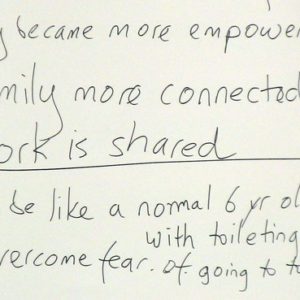 y became more empower
mily more connected
ork is shared
be like a normal 6 yr ol
with toileting
vercome fear. of going to t